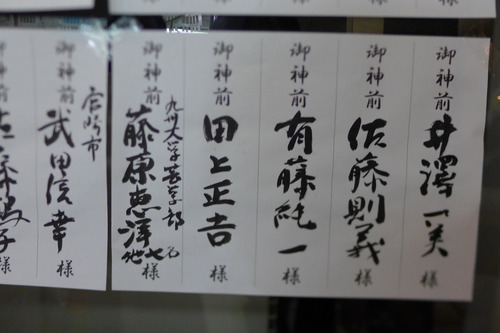 御神前 井澤一美 様
御神前 佐藤則義 様
御神前 有藤純一 様
御神前 田上正吉 様
御神前 九州大学芸学部 藤原惠澤 他七名 様
御神前 宮崎市 武田信幸 様
神前 子 様